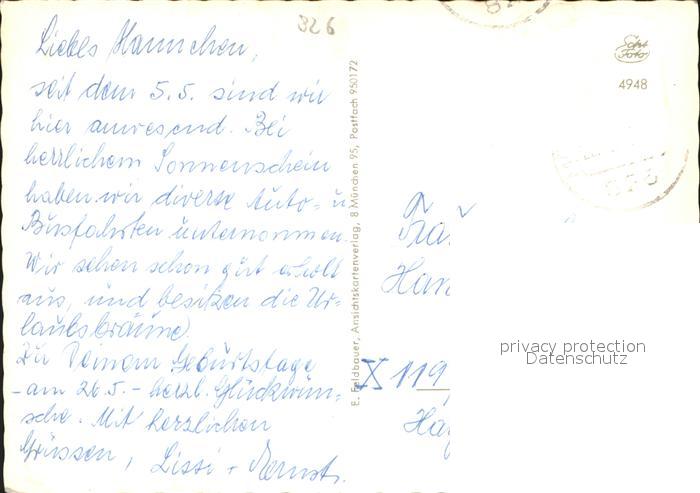 326
Liebes Hannchen,
seit dem 5.5. sind wir
hier anwesend. Bei
herrlichem Sonnenschein
haben wir diverse Auto- u.
Busfahrten unternommen.
Wir sehen schon gut erholt
aus, und besitzen die Ur-
laubsbräune.
Zu Deinem Geburtstage
- am 26.5. - herzl. Glückwün-
sche. Mit herzlichen
Grüssen, Lissi +
E. Feldbauer, Ansichtskartenverlag, 8 München 95, Postfach 950172
4948
X 119
privacy protection
Datenschutz